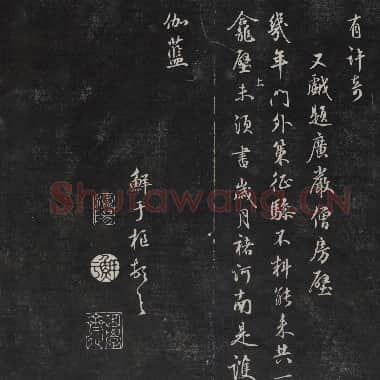 有许奇
又戲題廣嚴僧房壁
幾年門外策征驂不料能来共一
龕上壁未須書歲月褚河南是誰
伽藍
鮮于枢拜
Shufawang.CN